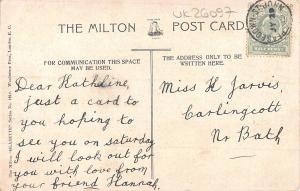 THE MILTON POST CARD
UK26097
FOR COMMUNICATION THIS SPACE
MAY BE USED.
THE ADDRESS ONLY TO BE
WRITTEN HERE.
Dear Kathleine
Just a card to
you hoping to
see you on Saturday
I will look out for
you with love from
your friend Hannah.
Miss H Jarvis,
Carlingcott
Nr Bath